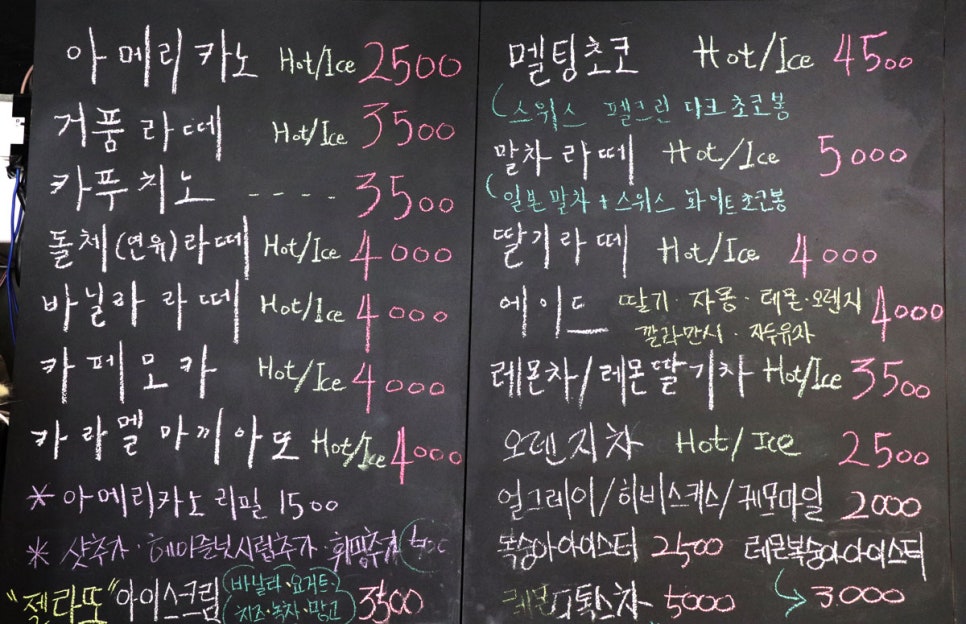 아메리카노 Hot/Ice 2500
거품라떼 Hot/Ice 3500
카푸치노 ---- 3500
돌체(연유)라떼 Hot/Ice 4000
바닐라 라떼 Hot/Ice 4000
카페모카 Hot/Ice 4000
카라멜 마끼아또 Hot/Ice 4000
* 아메리카노 리필 1500
* 샷추가·헤이즐넛시럽추가·휘핑추가 500
"젤라또" 아이스크림 (바닐라·요거트·치즈·녹차·망고) 3500
멜팅초코 Hot/Ice 4500
스위스 펠크린 다크초코봉
말차라떼 Hot/Ice 5000
일본말차+스위스 화이트초코봉
딸기라떼 Hot/Ice 4000
에이드 딸기·자몽·레몬·오렌지 4000
깔라만시·자두유자
레몬차/레몬딸기차 Hot/Ice 3500
오렌지차 Hot/Ice 2500
얼그레이/히비스커스/캐모마일 2000
복숭아아이스티 2500 레몬복숭아아이스티
3.000
레몬디톡스차 5000